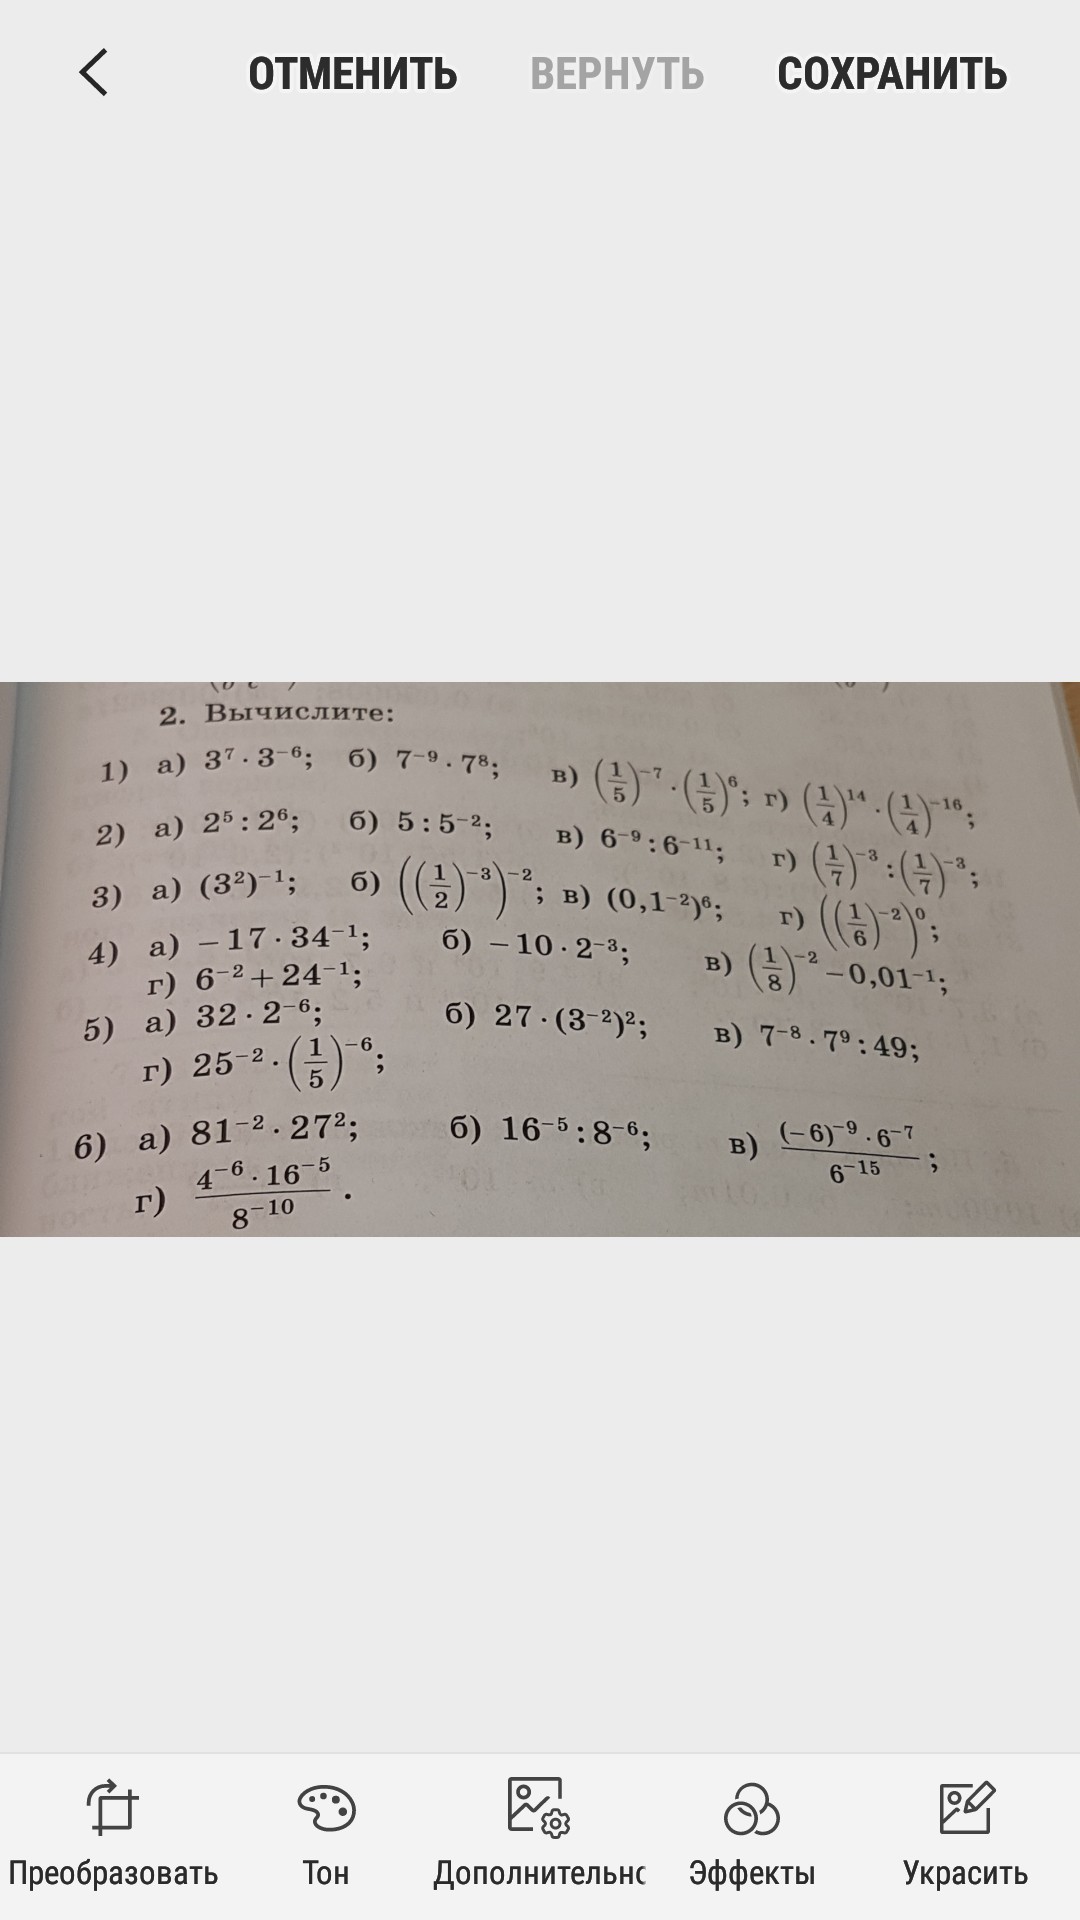 ОТМЕНИТЬ ВЕРНУТЬ СОХРАНИТЬ
2. Вычислите:
1) а) 3⁷ · 3⁻⁶; б) 7⁻⁹ · 7⁸; в) (1/5)⁻⁷ · (1/5)⁶; г) (1/4)¹⁴ · (1/4)⁻¹⁶;
2) а) 2⁵ : 2⁶; б) 5 : 5⁻²; в) 6⁻⁹ : 6⁻¹¹; г) (1/7)⁻³ : (1/7)⁻³;
3) а) (3²)⁻¹; б) ((1/2)⁻³)⁻²; в) (0,1⁻²)⁶; г) ((1/6)⁻²)⁰;
4) а) −17 · 34⁻¹; б) −10 · 2⁻³; в) (1/8)⁻² − 0,01⁻¹;
г) 6⁻² + 24⁻¹;
5) а) 32 · 2⁻⁶; б) 27 · (3⁻²)²; в) 7⁻⁸ · 7⁹ : 49;
г) 25⁻² · (1/5)⁻⁶;
6) а) 81⁻² · 27²; б) 16⁻⁵ : 8⁻⁶; в) (−6)⁻⁹ · 6⁻⁷ / 6⁻¹⁵;
г) 4⁻⁶ · 16⁻⁵ / 8⁻¹⁰ .
Преобразовать Тон Эффекты Украсить